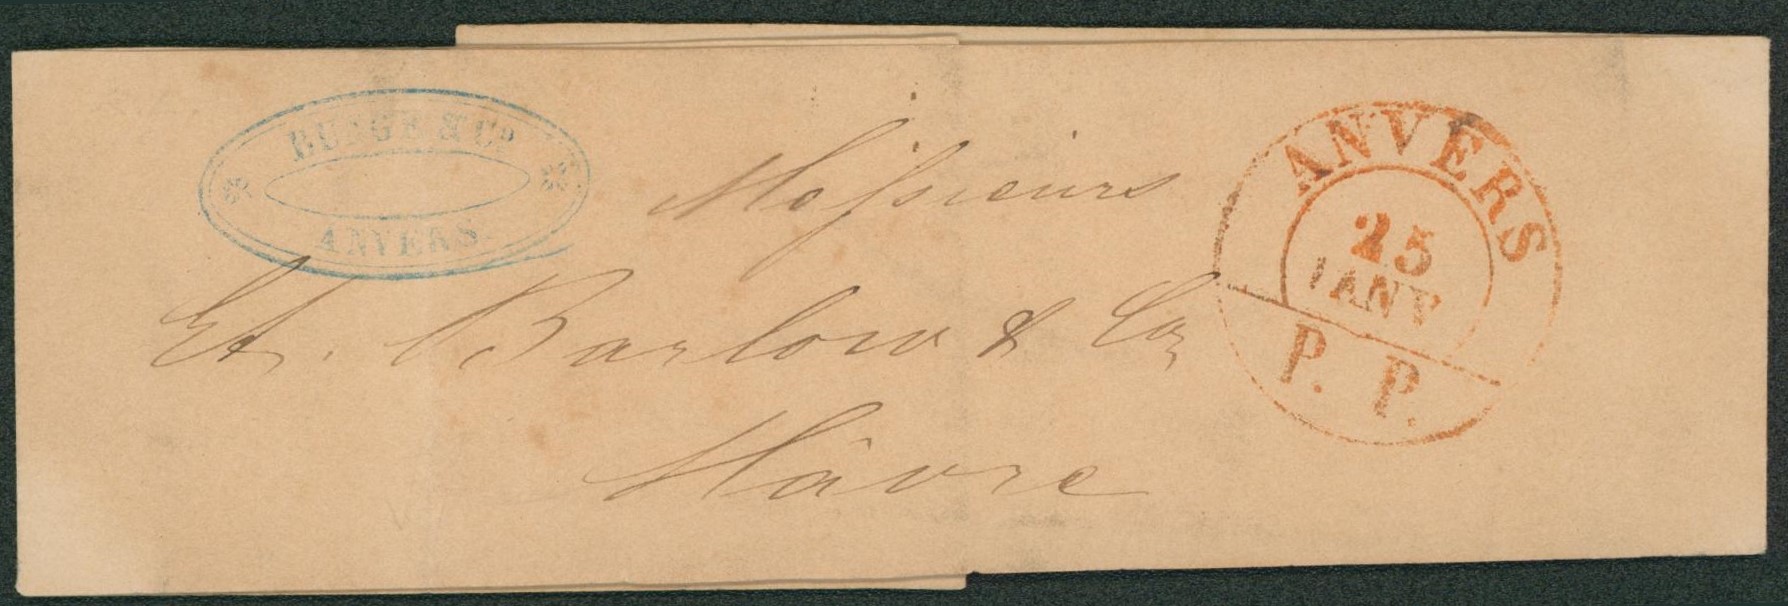 BUNGE & Co
ANVERS
Messieurs
Et. Barlow & Co
Hâvre
ANVERS
25
JANV
P. P.